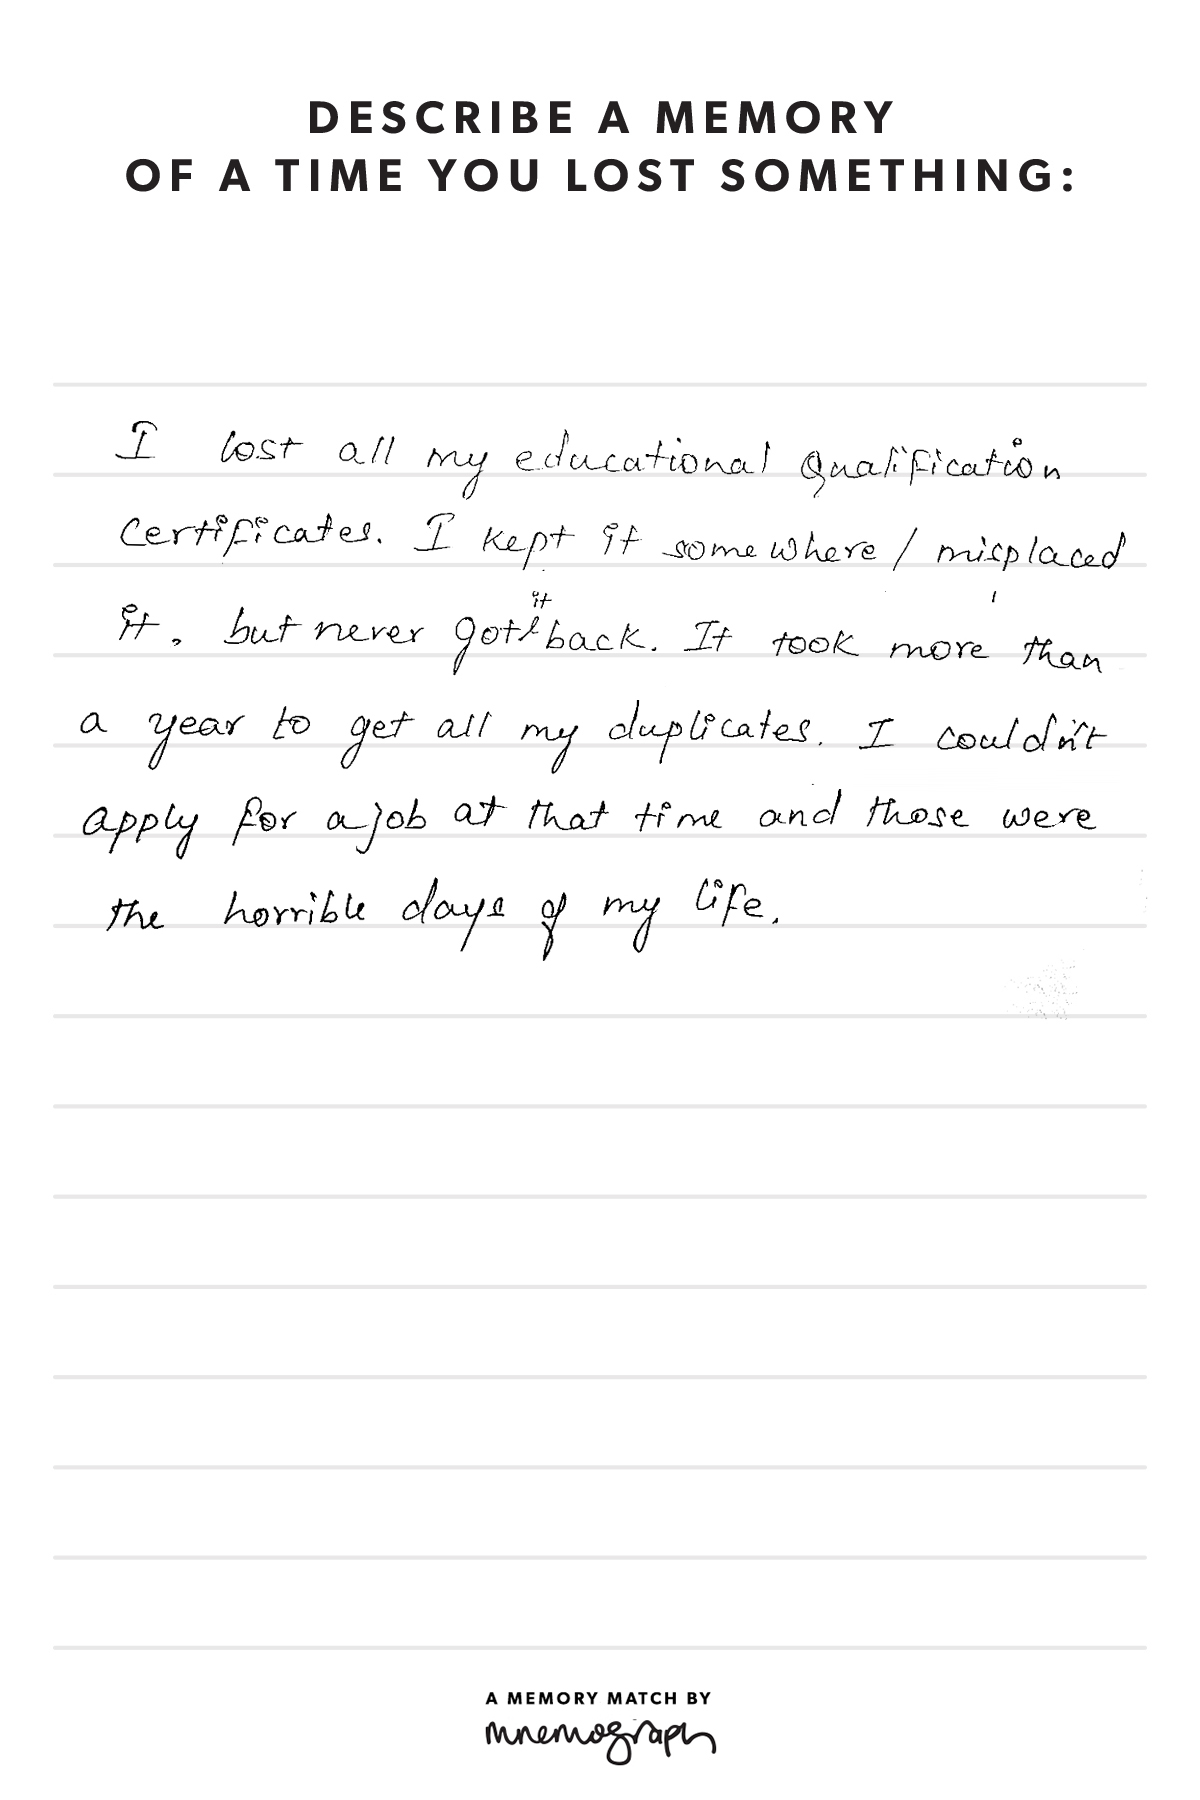 DESCRIBE A MEMORY
OF A TIME YOU LOST SOMETHING:
I lost all my educational Qualification
Certificates. I kept it somewhere / misplaced
it, but never got it back. It took more than
a year to get all my duplicates. I couldn't
apply for a job at that time and those were
the horrible days of my life.
A MEMORY MATCH BY
mnemograph